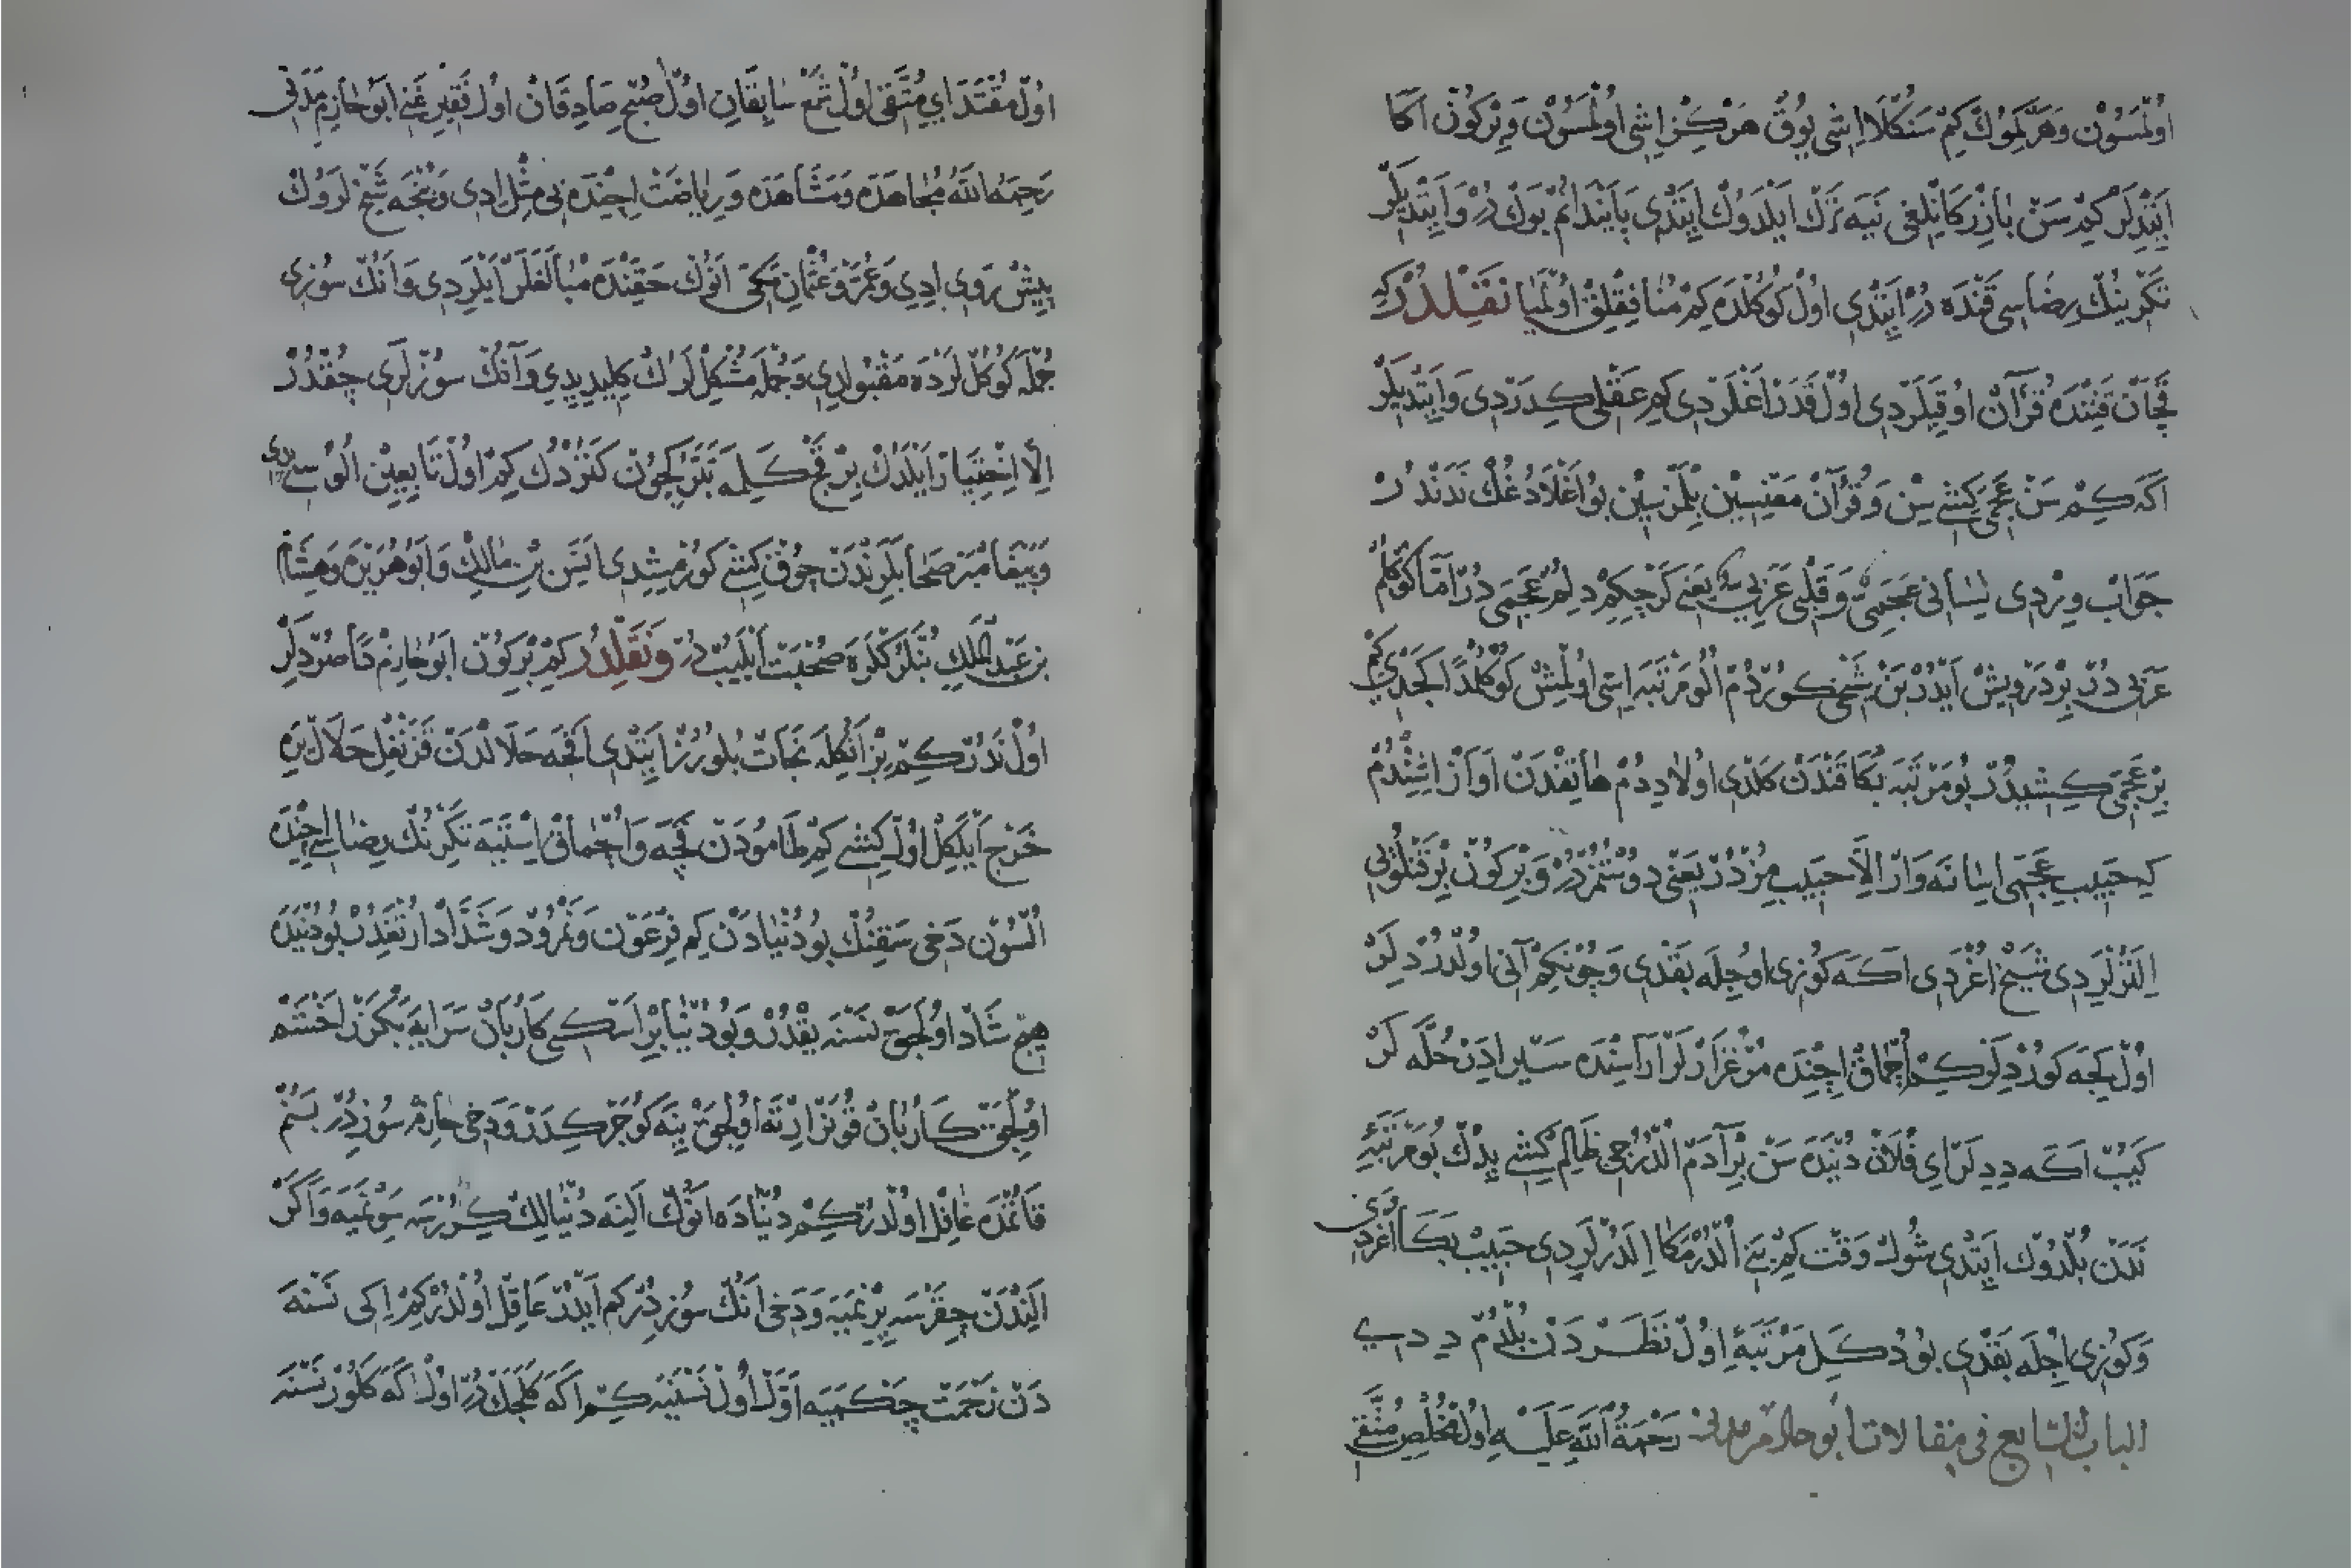 اولمسون وهر كموك كم سنكلا اشی یوق هركز اشی اولمسون وبركون اكا
ایتدلر كم سن بازركانلغی نیه ترك ایلدوك ایتدی پایندانم بوك در وایتدیلر
تكرینك رضاسی قنده در ایتدی اول كوكلده كم منافقلق اولمیا نقلدر كه
قچان قتنده قرآن اوقیلردی اول قدر اغلردی كم عقلی كدردی وایتدیلر
اكه كم سن عجمی كشی سین وقرآن معنیسین بلمزسین بو اغلادوغك ندندر
جواب ویردی لسانی عجمی وقلبی عربی یعنی كرچكم دلم عجمی در اما كوكلم
عربی در بر درویش ایدر بن شیخی كوردم الو مرتبه اسی اولمش كوكلمدا كجدی كم
بر عجمی كشیدر بو مرتبه بكا قندن كلدی اولا ددم هاتفدن اواز اشتدم
كه حبیب عجمی اسا نه وار الا حبیبمزدر یعنی دوستمزدر وبركون بر قنلویی
الترلردی شیخ اغردی اكه كوزی اوجله بقدی وچونكم آنی اولدردلر
اول كجه كوردلر كم اچماق اچنده مرغزارلر اراسنده سیر ادر حله لر
كیب اكه ددلر ای فلان دنیده سن بر آدم الدرجی ظالم كشی یدك بو مرتبیه
ندن بلدوك ایتدی شول وقت كم بنی الدرمكا الدرلردی حبیب بكا اغردی
وكوزی اجله بقدی بو دكل مرتبه اول نظردن بلدم ددی
الباب السابع فی مقالات ابو حازم مدنی رحمة الله علیه اول مخلص متقی
اول مقتدای متقی اول شمع سابقان اول صبح صادقان اول فقیر غنی ابو حازم مدنی
رحمه الله مجاهده ومشاهده وریاضت اچنده بی مثل ادی ونجه شیخلروك
پیش روی ادی وعمر وعثمان مكی انوك حقنده مبالغلر ایلردی وانك سوزی
جمله كوكللرده مقبولدی وجمله مشكللرك كلیدیدی وآنك سوزلری چقدر
الا اختیار ایلدك بر قچ كلمه تبرك اچون كتردك كم اول تابعین الوسیدی
وپیغامبر صحابلرندن چوق كشی كورمشدی انس بن مالك وابو هریره وهشام
بن عبد الملك بنلركله صحبت ایلیبدر ونقلدر كم بركون ابو حازم دا صردلر
اول ندر كم بز انكله نجات بلورز ایتدی اقجه حلالدن قزنغل حلال یره
خرج ایلكل اول كشی كم طامودن قچه واچماق استیه تكرنك رضاسی اچنده
السون دخی سقنك بو دنیادن كم فرعون ونمرود وشداد ارتقدر بو دنیده
هیچ شاد اولجق نسنه یقدر وبو دنیا بر اسكی كاربان سرایه بكزر اخشم
اولجق كاربان قونر ارته اولجق ینه كوجر كدر ودخی حازم سوزدر بسنم
قاتمده عاقل اولدر كم دنیاده انوك الینه دنیالك كررسه سونمیه واكر
الندن چقرسه یرنمیه ودخی انك سوزدر كم ایدر عاقل اولدر كم اكی نسنه
دن زحمت چكمیه اول اول نسنیه كم اكه كلجكدر اول اكه كلور نسنه